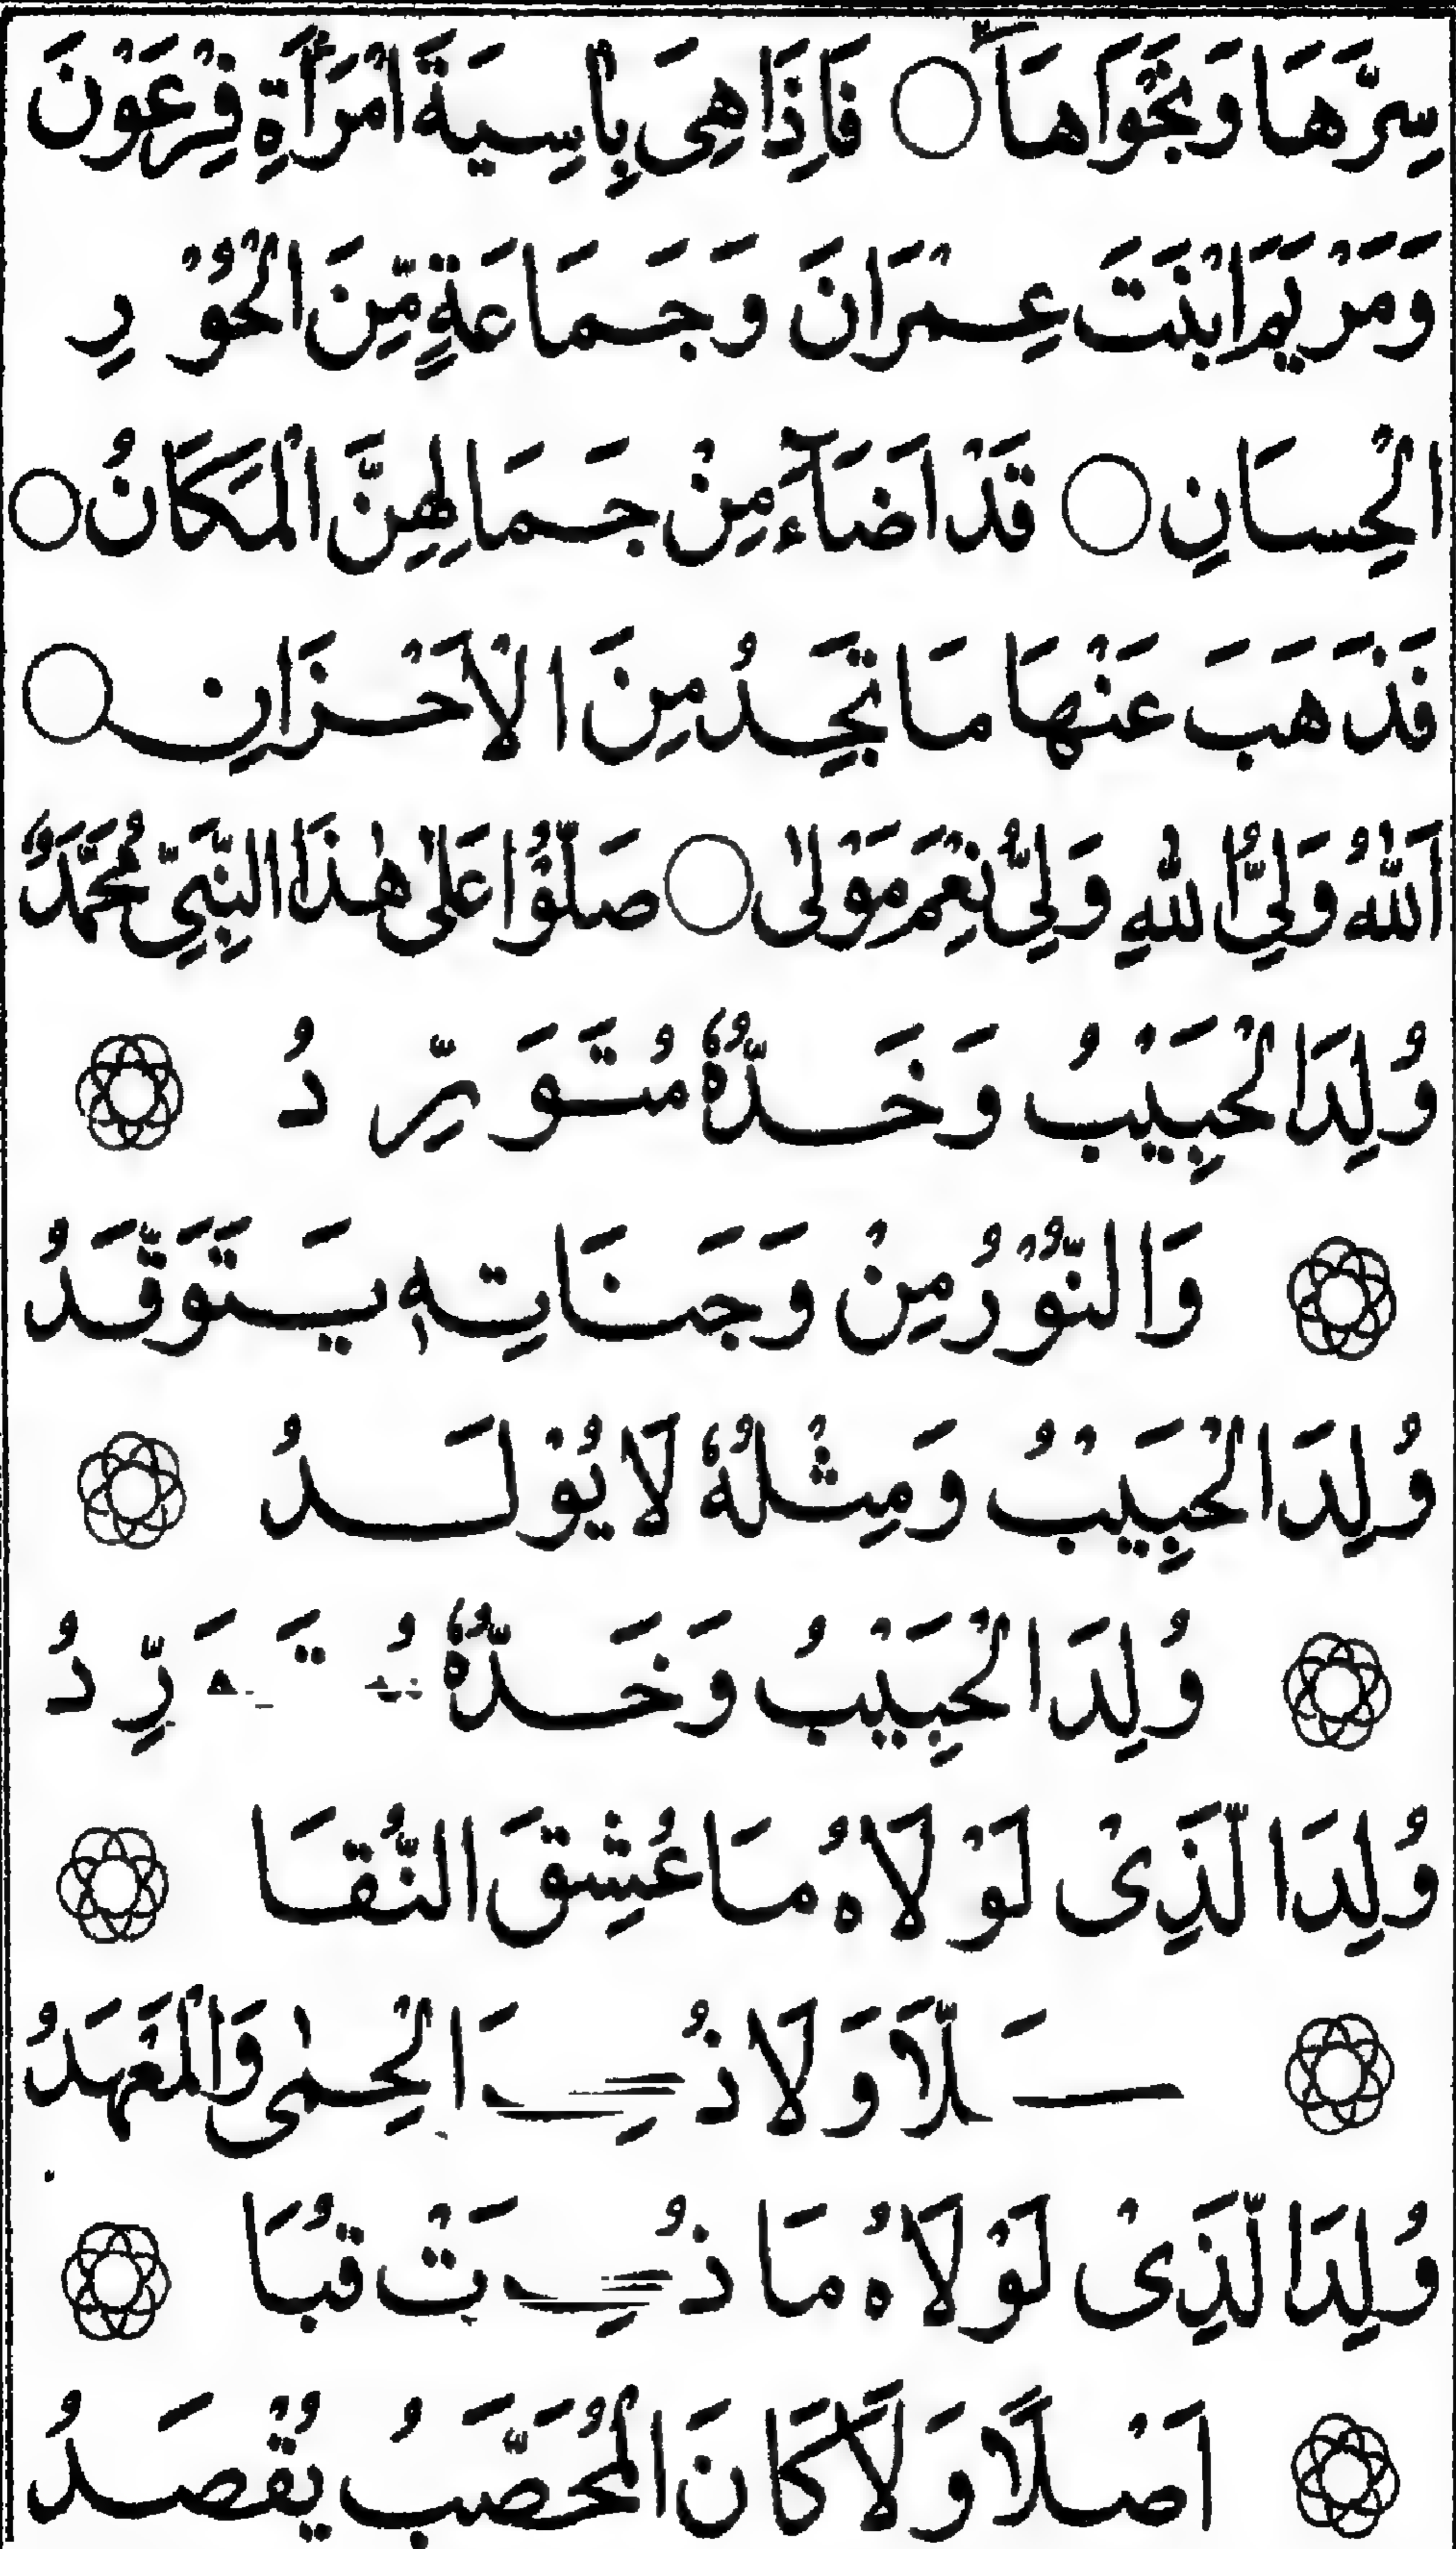 سِرَّهَا وَنَجْوَاهَا ○ فَاِذَا هِىَ بِاٰسِيَةَ امْرَأَةِ فِرْعَوْنَ
وَمَرْيَمَ ابْنَتَ عِمْرَانَ وَجَمَاعَةٍ مِّنَ الْحُوْرِ
الْحِسَانِ ○ قَدْ اَضَآءَ مِنْ جَمَالِهِنَّ الْمَكَانُ ○
فَذَهَبَ عَنْهَا مَا تَجِدُ مِنَ الْاَحْزَانِ ○
اَللّٰهُ وَلِيُّ اللهِ وَلِيُّ نِعْمَ مَوْلٰى ○ صَلُّوْا عَلٰى هٰذَا النَّبِيِّ مُحَمَّدٍ
وُلِدَ الْحَبِيْبُ وَخَدُّهٗ مُتَوَرِّدُ
وَالنُّوْرُ مِنْ وَجَنَاتِهٖ يَتَوَقَّدُ
وُلِدَ الْحَبِيْبُ وَمِثْلُهٗ لَا يُوْلَدُ
وُلِدَ الْحَبِيْبُ وَخَدُّهٗ رِّدُ
وُلِدَ الَّذِىْ لَوْلَاهُ مَا عُشِقَ النُّقَا
وَلَا الْحِمٰى وَالْمَعْهَدُ
وُلِدَ الَّذِىْ لَوْلَاهُ مَا قُبَا
اَصْلًا وَلَا كَانَ الْمُحَصَّبُ يُقْصَدُ